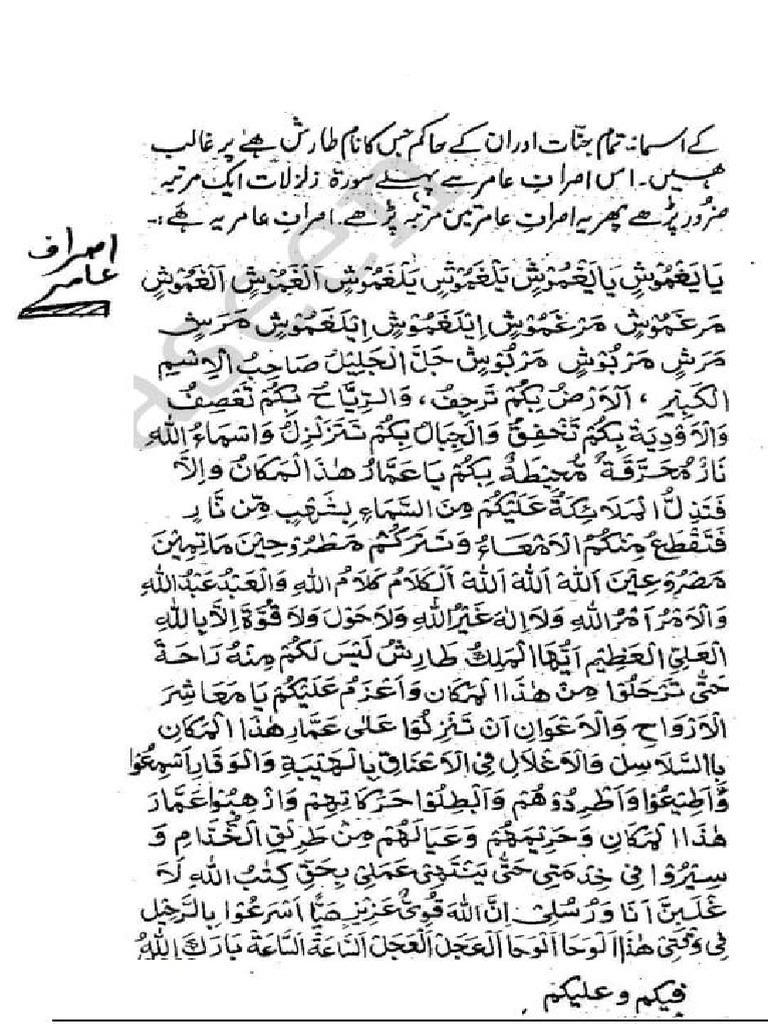 کے اسمانہ تمام جنّات اور ان کے حاکم جس کا نام طارش ہے پر غالب
ہیں۔ اس اصرافِ عامر سے پہلے سورۃ زلزلات ایک مرتبہ
ضرور پڑھے پھر یہ اصرافِ عامر تین مرتبہ پڑھے۔ اصرافِ عامر یہ ہے:۔
اصراف
عامر
یَا یَغْمُوْشٍ یَا یَغْمُوْشٍ یَلْغَمُوْشٍ یَلْغَمُوْشٍ اَلْغَمُوْشٍ اَلْغَمُوْشٍ
مَرْغَمُوْشٍ مَرْغَمُوْشٍ اِیْلَغْمُوْشٍ اِیْلَغْمُوْشٍ مَرَشٍ
مَرَشٍ مَرْبُوْشٍ مَرْبُوْشٍ جَلَّ الْجَلِیْلُ صَاحِبُ الْاِسْمِ
الْکَبِیْرِ ، اَلْاَرْضُ بِکُمْ تَرْجِفُ ، وَالرِّیَاحُ بِکُمْ تَعْصِفُ
وَالْاَوْدِیَةُ بِکُمْ تَخْفِقُ وَالْجِبَالُ بِکُمْ تَتَزَلْزِلُ وَاَسْمَاءُ اللّٰهِ
نَارٌ مُحَرَّقَةٌ مُحِیْطَةٌ بِکُمْ یَا عُمَّارُ هٰذَا الْمَکَانِ وَاِلَّا
فَتَنْزِلُ الْمَلَائِکَةُ عَلَیْکُمْ مِنَ السَّمَاءِ بِشَهْبٍ مِّنْ نَّارٍ
فَتَقْطَعُ مِنْکُمُ الْاَمْعَاءُ وَتَتْرَکُکُمْ مَطْرُوْحِیْنَ مَاتِمِیْنَ
مَصْرُوْعِیْنَ اَللّٰهُ اَللّٰهُ اَللّٰهُ اَلْکَلَامُ کَلَامُ اللّٰهِ وَالْعَبْدُ عَبْدُ اللّٰهِ
وَالْاَمْرُ اَمْرُ اللّٰهِ وَلَا اِلٰهَ غَیْرُ اللّٰهِ وَلَا حَوْلَ وَلَا قُوَّةَ اِلَّا بِاللّٰهِ
الْعَلِیِّ الْعَظِیْمِ اَیُّهَا الْمَلِکُ طَارِشُ لَیْسَ لَکُمْ مِنْهُ رَاحَةً
حَتّٰی تَرْحَلُوْا مِنْ هٰذَا الْمَکَانِ وَاَعْزِمُ عَلَیْکُمْ یَا مَعَاشِرَ
الْاَرْوَاحِ وَالْاَعْوَانِ اَنْ تَنْزِلُوْا عَلٰی عُمَّارِ هٰذَا الْمَکَانِ
بِالسَّلَاسِلِ وَالْاَغْلَالِ فِی الْاَعْنَاقِ بِالْهَیْبَةِ وَالْوَقَارِ اَسْمِعُوْا
وَاَطِیْعُوْا وَاَطْرِدُوْهُمْ وَاَبْطِلُوْا حَرَکَاتِهِمْ وَازْهِبُوْا عُمَّارَ
هٰذَا الْمَکَانِ وَحَرِیْمَهُمْ وَعِیَالَهُمْ مِنْ طَرِیْقِ الْخُدَّامِ وَ
سِیْرُوْا فِیْ خِدْمَتِیْ حَتّٰی یَنْتَهِیَ عَمَلِیْ بِحَقِّ کِتٰبُ اللّٰهِ لَا
غْلَبَنَّ اَنَا وَرُسُلِیْ اِنَّ اللّٰهَ قَوِیٌّ عَزِیْزٌ هَیَّا اَسْرِعُوْا بِالرَّحِیْلِ
فِیْ وَقْتِیْ هٰذَا اَلْوَحَا اَلْوَحَا اَلْعَجَلَ الْعَجَلَ السَّاعَةَ السَّاعَةَ بَارَکَ اللّٰهُ
فِیکم و علیکم